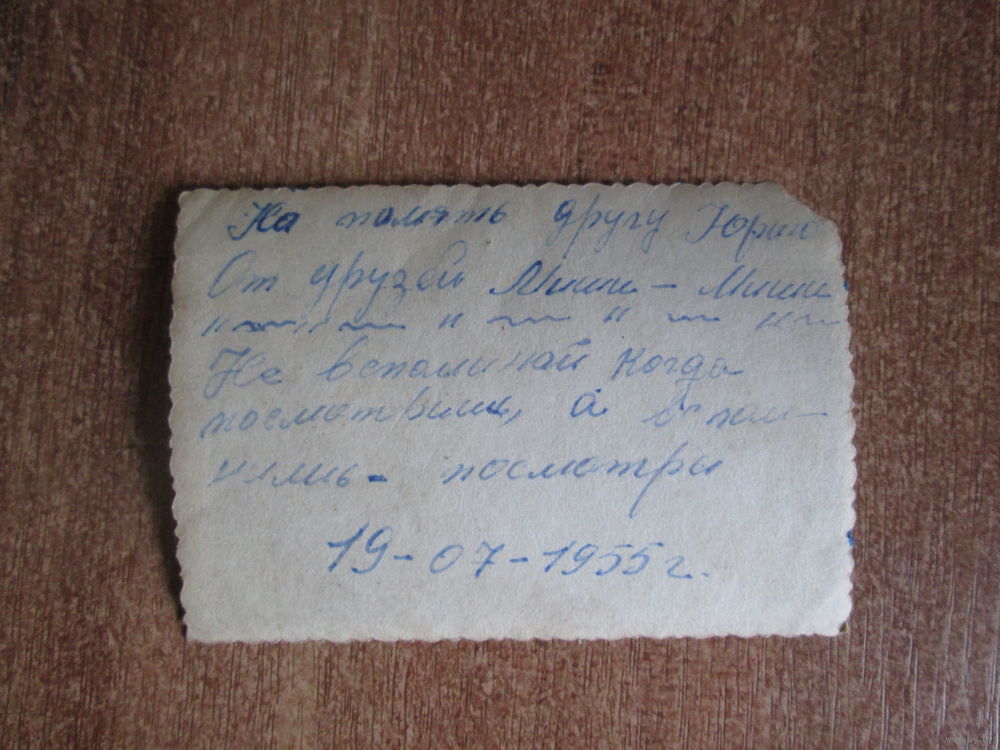 На память другу Юрии
От друзей Миши – Миши
Не вспоминай когда
посмотриш, а вспом-
нишь - посмотри
19-07-1955 г.